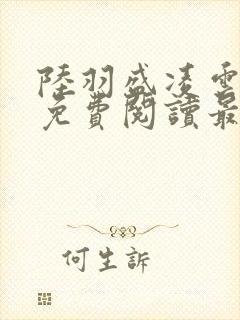 陸羽盛凌雲
免費閱讀最
何生訴